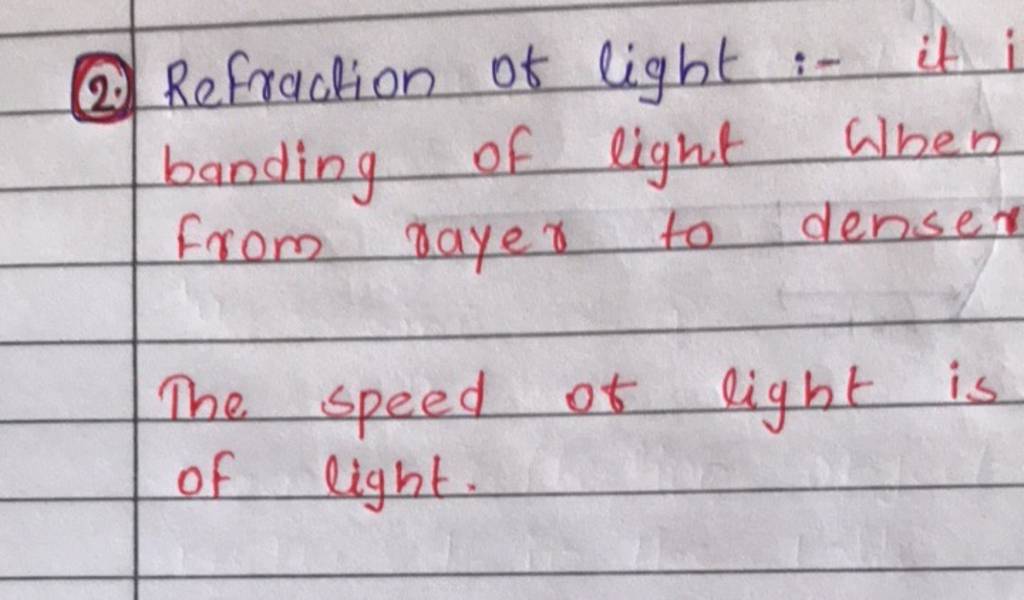 2. Refraction of light :- it i
banding of light When
from rayer to denser
The speed of light is
of light.